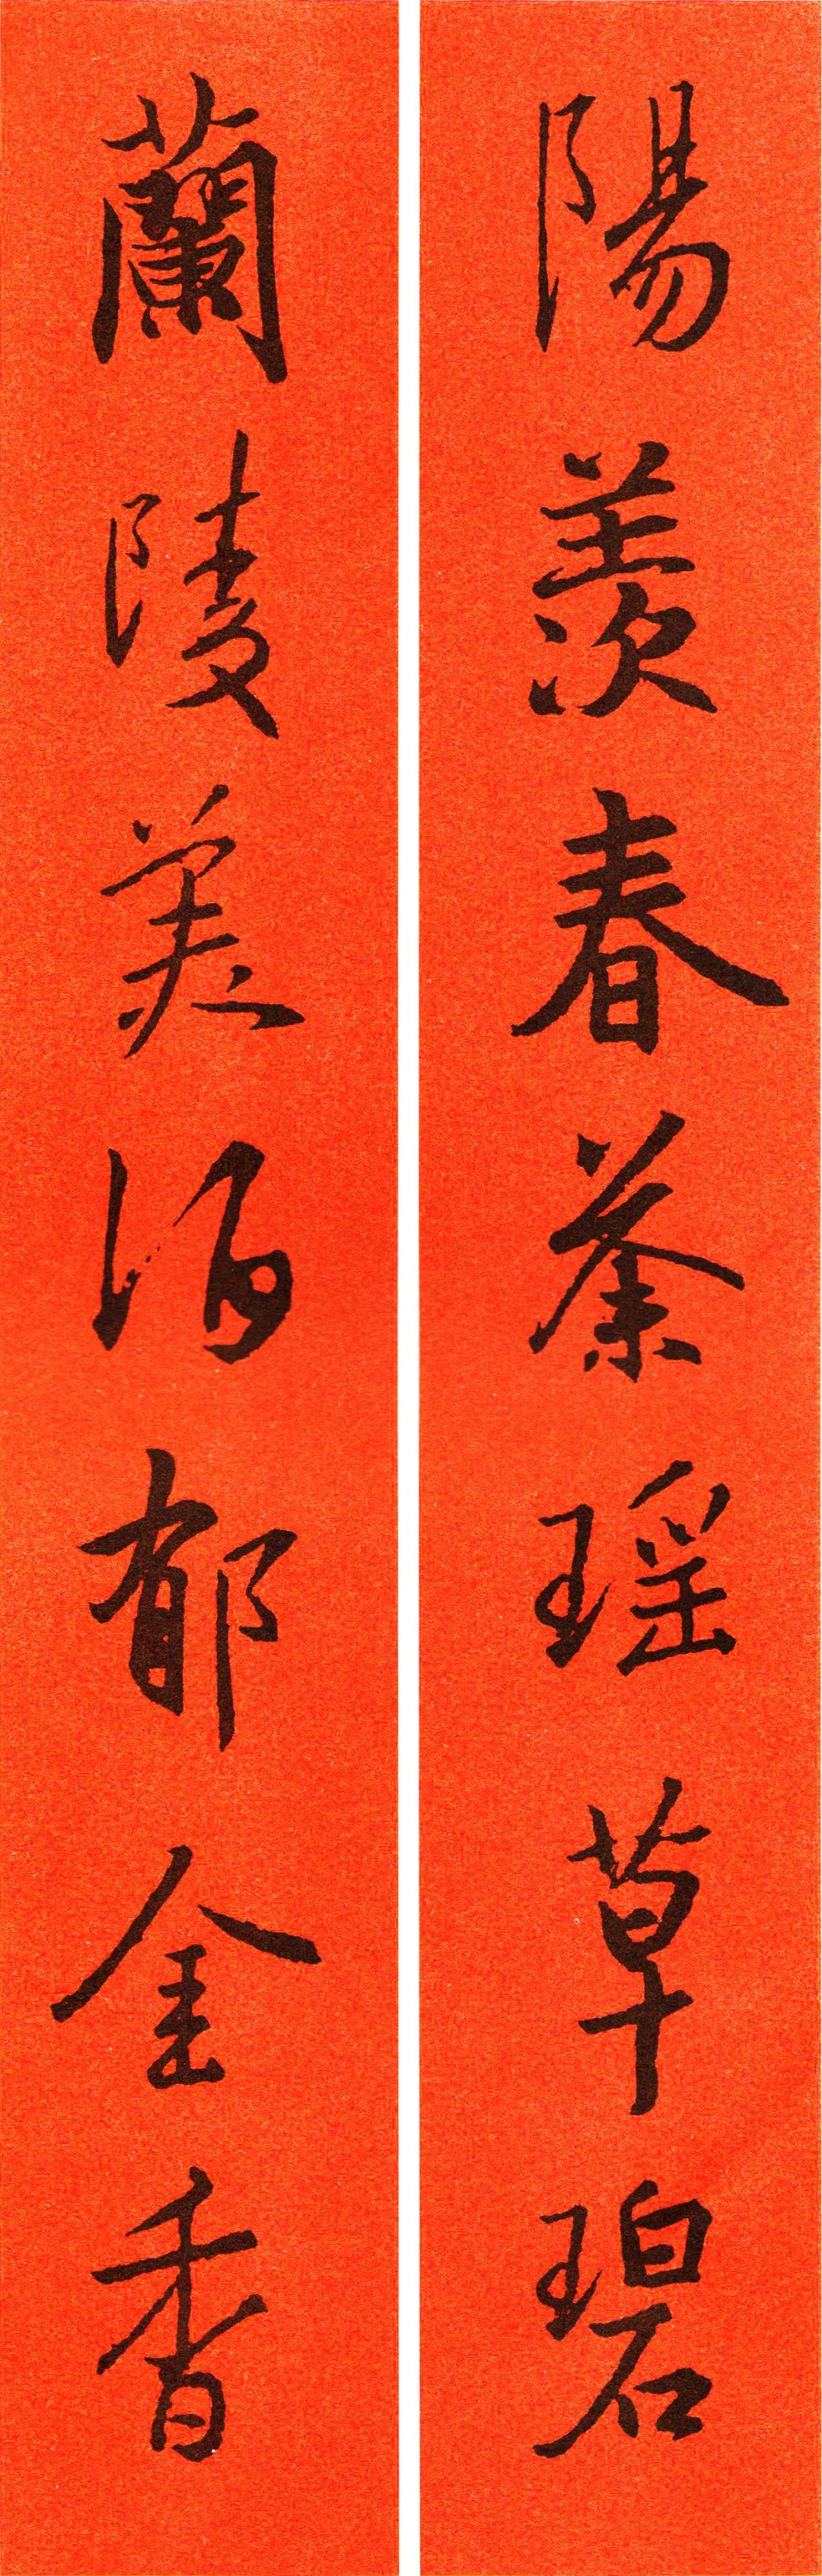 陽羨春茶瑶草碧
蘭陵美酒郁金香